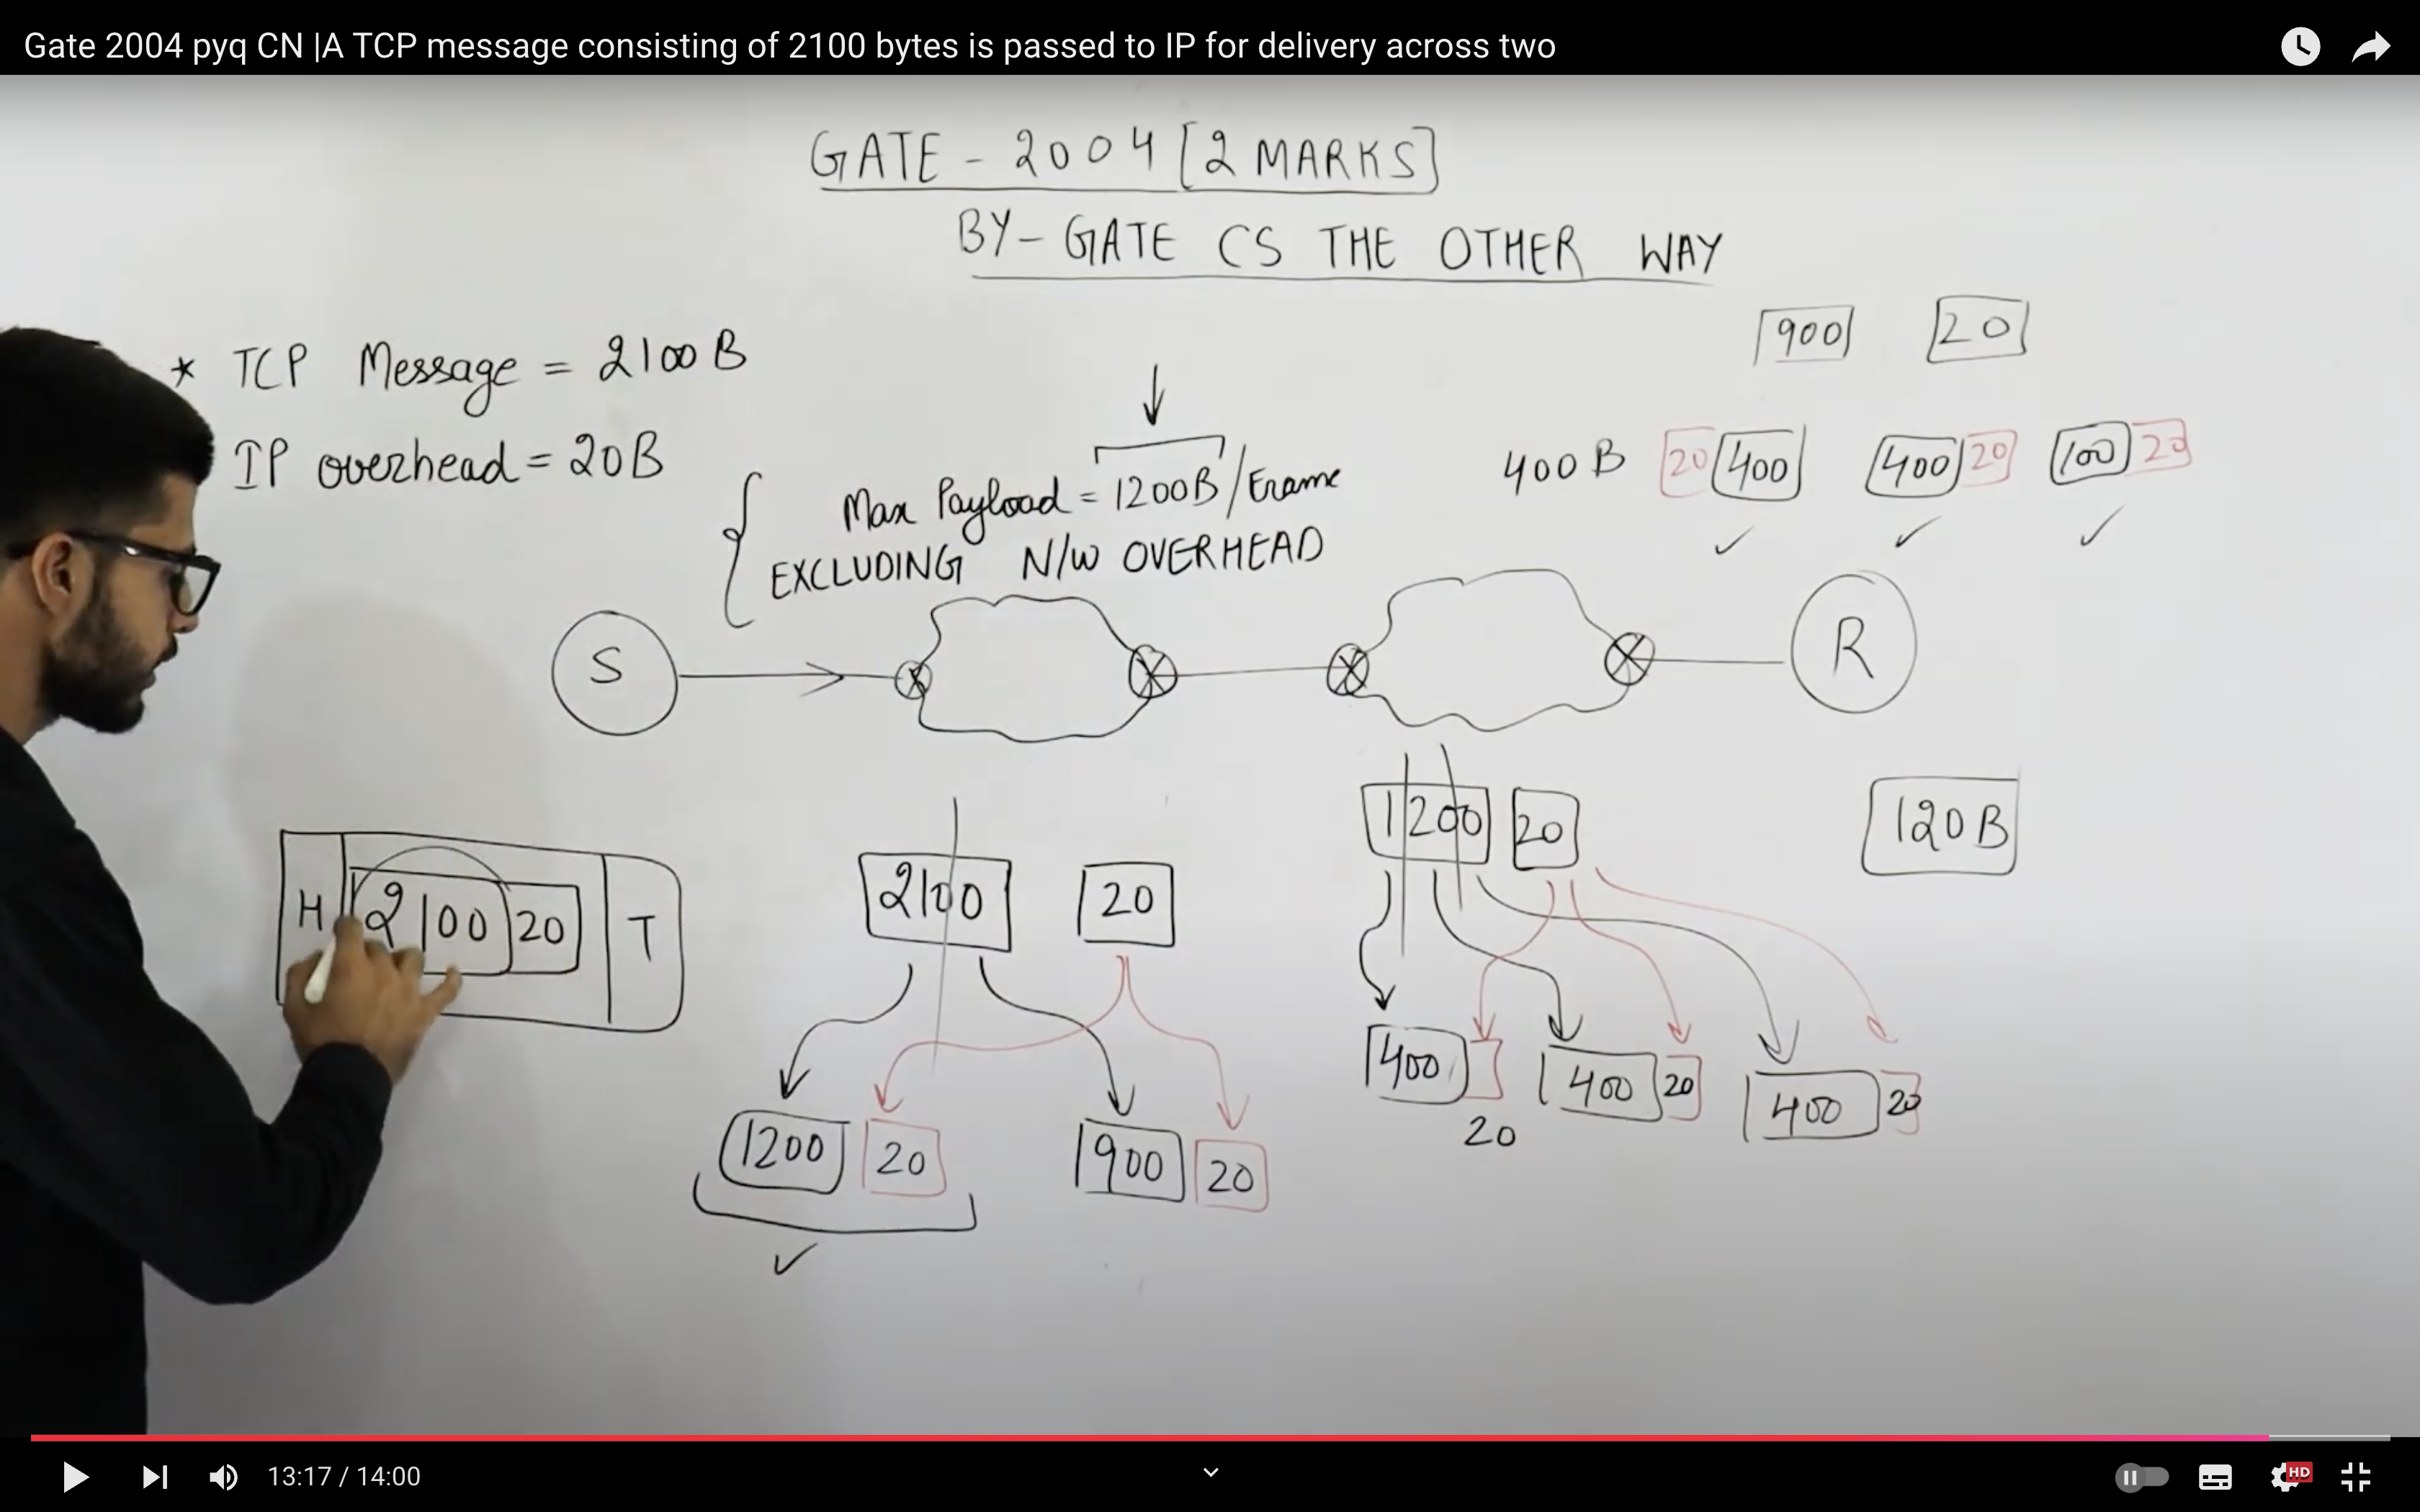 Gate 2004 pyq CN |A TCP message consisting of 2100 bytes is passed to IP for delivery across two
GATE - 2004 [2 MARKS]
BY- GATE CS THE OTHER WAY
900 20
* TCP Message = 2100 B
IP overhead = 20B
Max Payload = 1200B/Frame
EXCLUDING N/W OVERHEAD
400 B 20 400 400 20 100 20
S
R
1200 20
120B
H 2100 20 T
2100 20
400 20 400 20 400 20
1200 20 900 20
13:17 / 14:00
HD